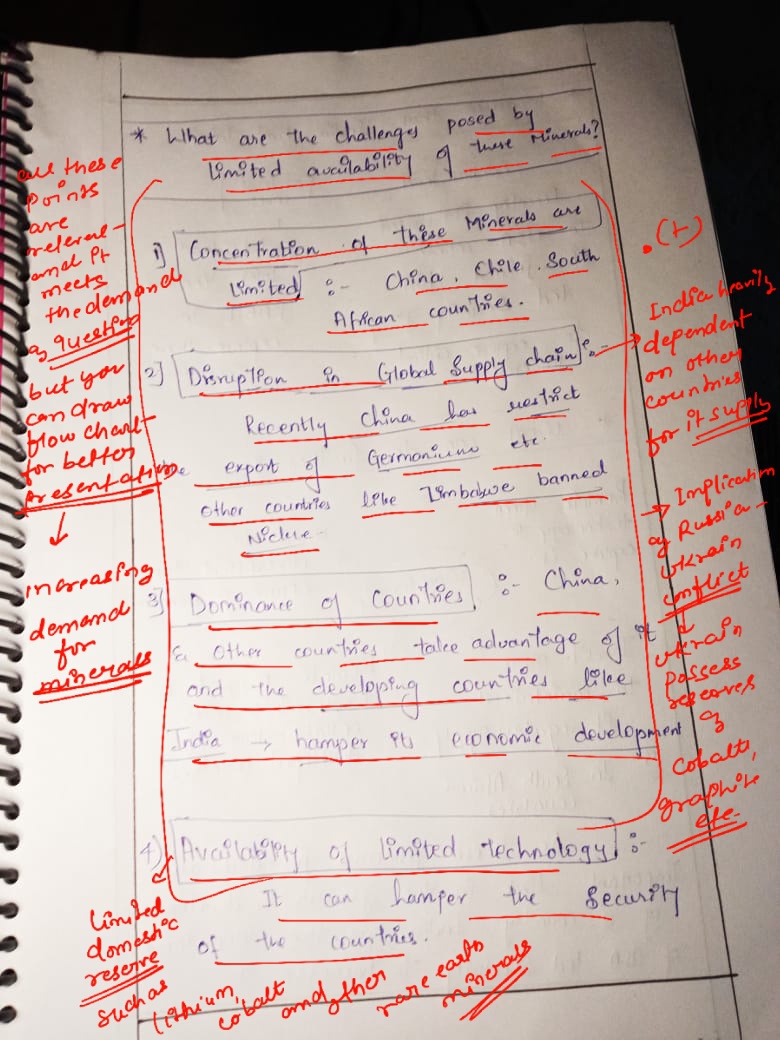 * What are the challenges posed by
limited availability of these Minerals?
1] Concentration of these Minerals are
limited :- China, Chile, South
African countries.
2] Disruption in Global Supply chain :-
Recently China has restrict
export of Germanium etc.
other countries like Zimbabwe banned
Nickle
3] Dominance of Countries :- China,
& other countries take advantage of it
and the developing countries like
India → hamper its economic development
4) Availability of limited technology :-
It can hamper the Security
of the countries.
all these
points
are
and it
meets
the demand
of question
but you
can draw
flow chart
for better
presentation
↓
increasing
demand
for
minerals
(+)
→ India heavily
dependent
on other
countries
for it supply
→ Implication
of Russia-
Ukrain
conflict
Ukrain
possess
reserves
of
Cobalts,
graphite
etc.
Limited
domestic
reserve
such as
lithium,
cobalt
and other
rare earth
minerals